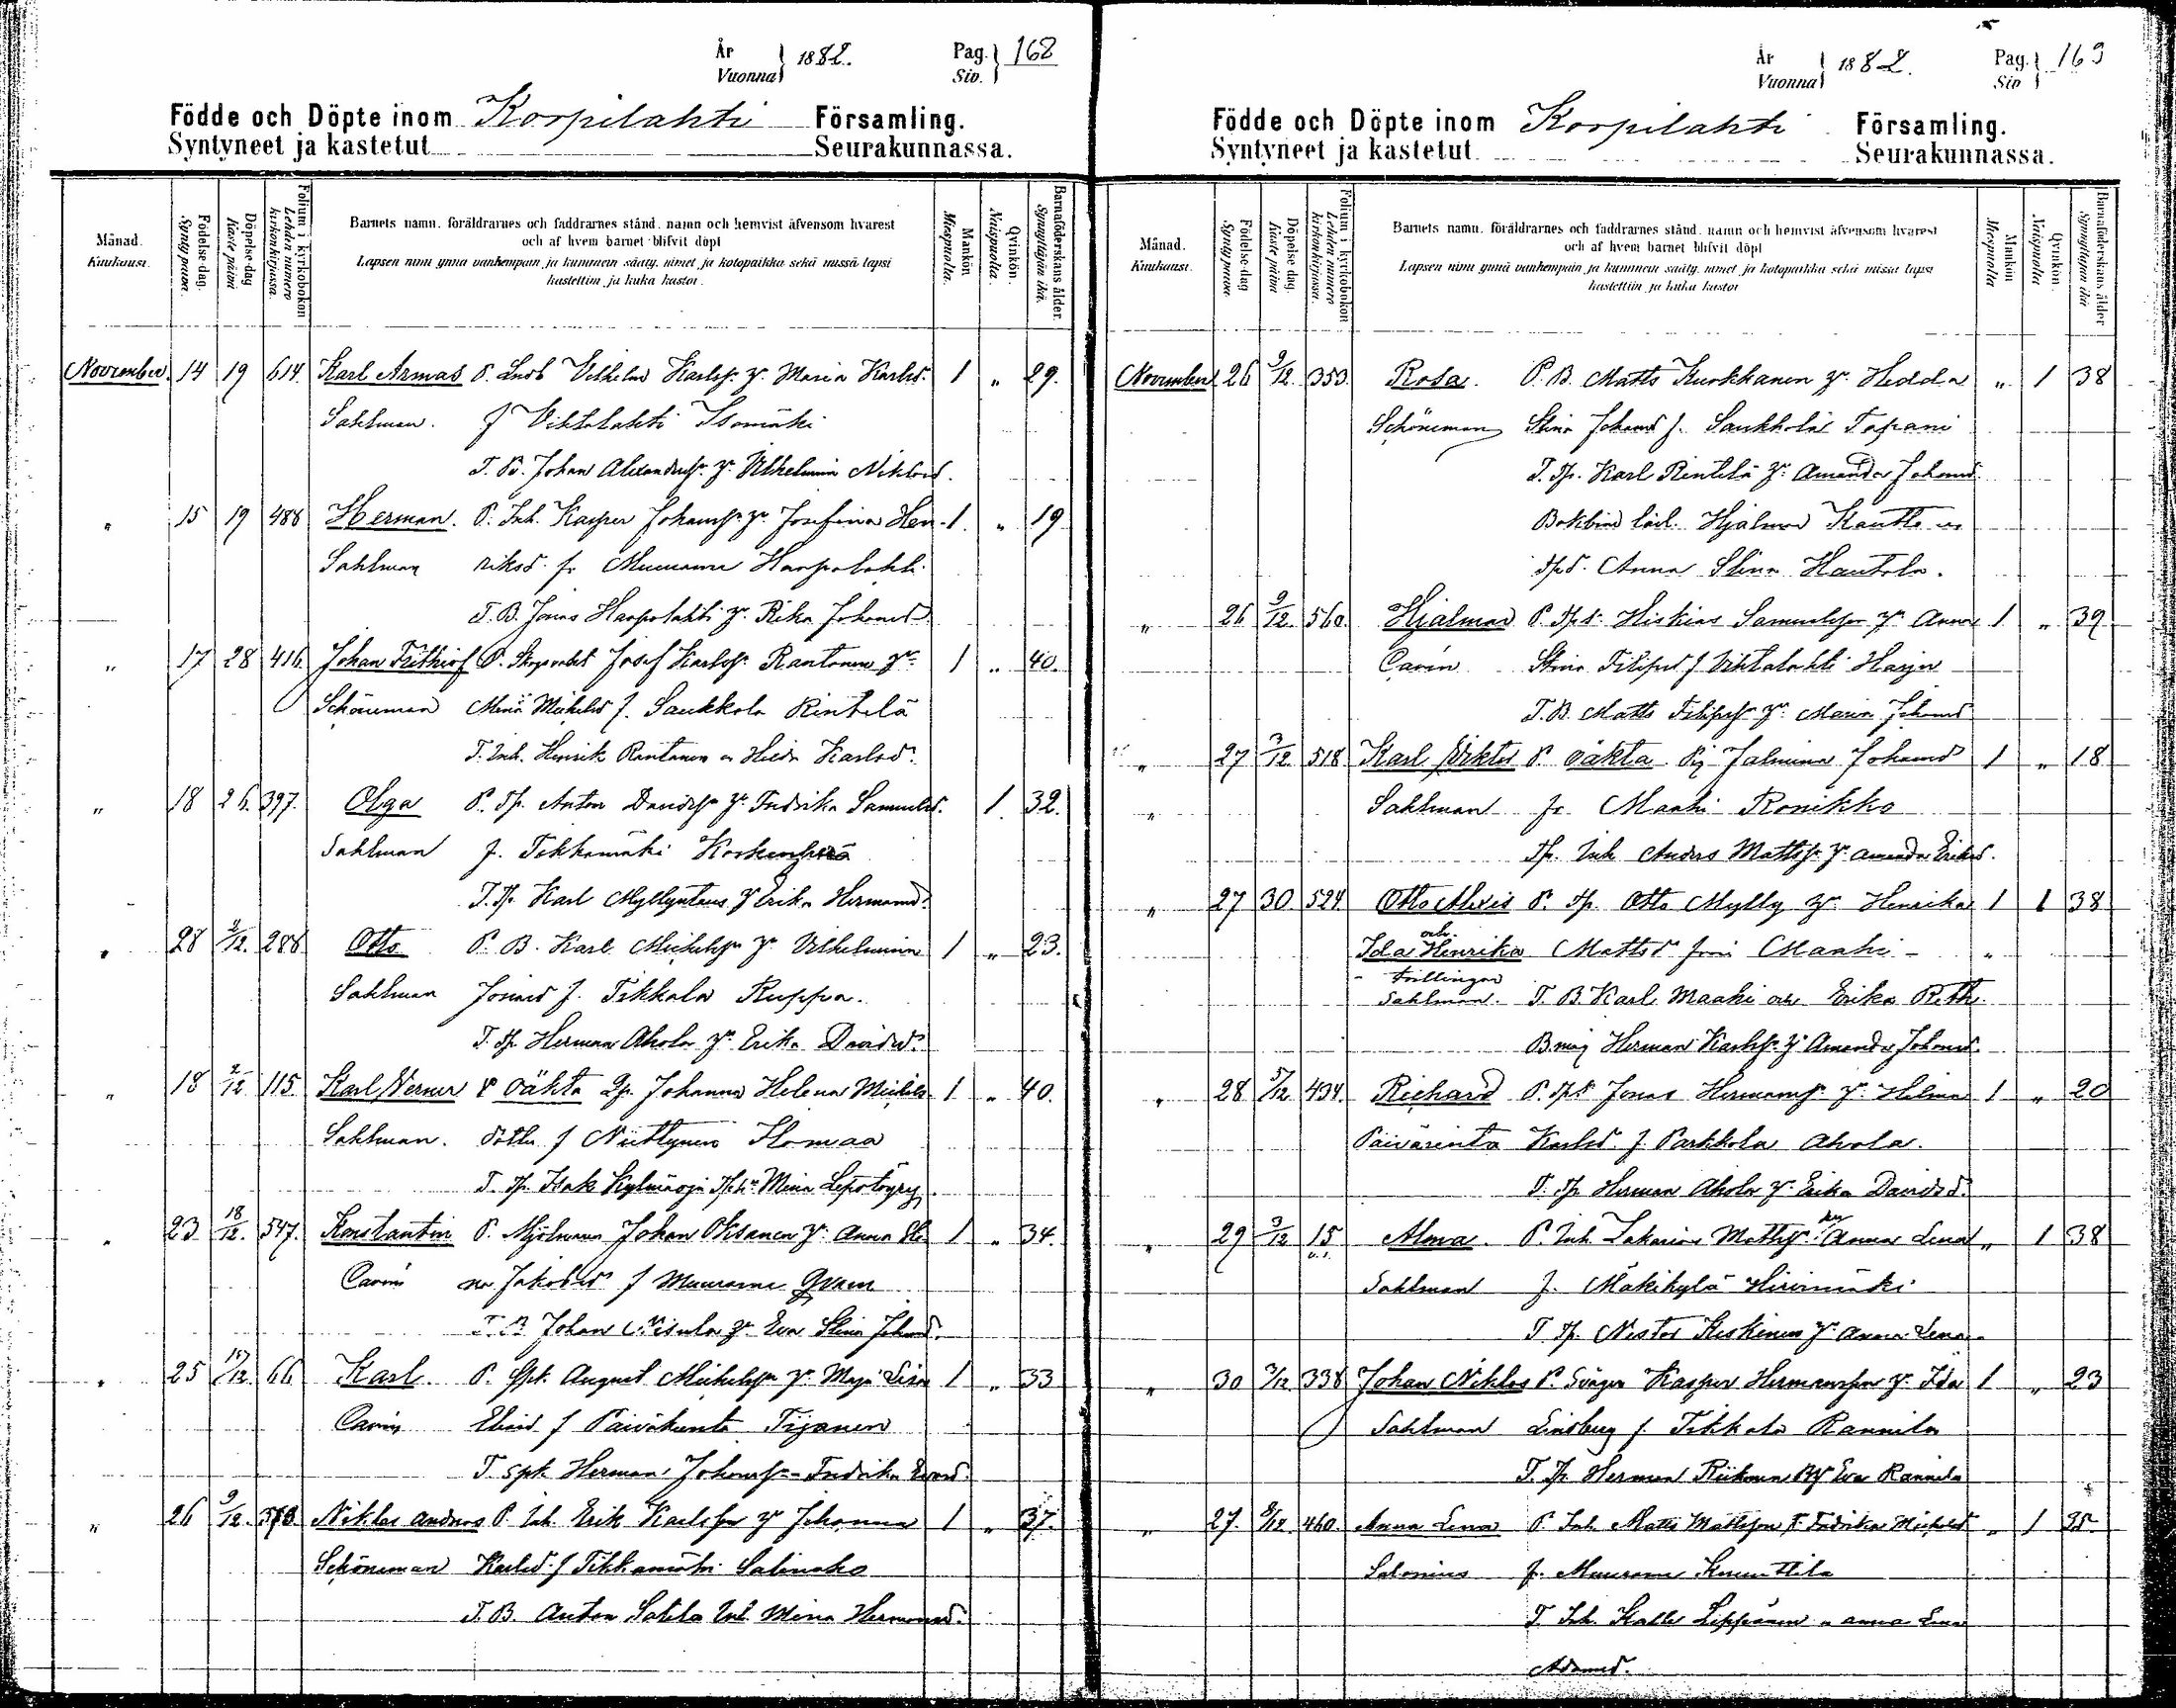 År Vuonna } 1882. Pag. Siv. } 168
Födde och Döpte inom Korpilahti Församling.
Syntyneet ja kastetut Seurakunnassa.
Månad. Kuukausi.
Födelse-dag. Synty päivä.
Döpelse-dag. Kaste päivä
Folium i kyrkobokon Lehden numero kirkonkirjassa.
Barnets namn. föräldrarnes och faddrarnes stånd. namn och hemvist äfvensom hvarest
och af hvem barnet blifvit döpt
Lapsen nimi ynnä vanhempain ja kummein sääty. nimet ja kotopaikka sekä missä lapsi
kastettiin ja kuka kastoi.
Mankön Miespuolta.
Qvinkön. Naispuolta.
Barnaföderskans ålder. Synnyttäjän ikä.
November. 14 19 614. Karl Armas P. Lnsb Vilhelm Karlss. Hu. Maria Karlsd. 1 „ 29.
Sahlman. f Vihtalahti Isomäki
T. B. Johan Alexanderss. Hu. Vilhelmina Niklasd.
„ 15 19 488 Herman. P. Inh. Kasper Johanss. Hu. Josefina Hen- 1. „ 19
Sahlman riksd. fr Muurame Haapalahti.
T. B. Jonas Haapalahti Hu. Rika Johansd.
„ 17 28 416. Johan Frithiof P. Josef Karlss. Rantanen Hu. 1 „ 40.
Schöneman Mina Mickelsd f. Saukkola Rintelä
T. Inh. Henrik Rantanen o Heda Karlsd.
„ 18 26. 397. Olga P. Tp. Anton Davidss Hu Fredrika Samuelsd. 1. 32.
Sahlman f. Tikkamäki
T. Tp. Karl Hu Erika Hermansd.
„ 28 2/12. 288 Otto P. B. Karl Mickelss Hu Vilhelmina 1 „ 23.
Sahlman Josiasd f. Tikkala Ruppa.
T. Tp. Herman Ahola Hu. Erika Davidsd.
„ 18 2/12 115. Karl Verner P. oäkta Johanna Helena Mickels 1 „ 40.
Sahlman. dotter f Niittynen Ilomaa
T. Tp. Isak Kylmäoja Mina
„ 23 18/12. 547. Konstantin P. Mjölnaren Johan Oksanen Hu. Anna Sti 1 „ 34.
Cavén na Jakobsd f Muurame
T. B. Johan Hu. Eva Stina Johansd.
„ 25 17/12 66 Karl. P. Spk. August Mickelss Hu. Maja Lisa 1 „ 33
Cavén Eliasd f Päiväkunta Tijanen
T. Spk. Herman Johanss - Fredrika
„ 26 9/12. Niklas Andreas P. Inh. Erik Karlsson Hu Johanna 1 „ 37.
Schöneman Karlsd. f Tikkamäki
T. B. Anton Inh. Mina Hermansd.
År Vuonna } 1882. Pag. Siv } 169
Födde och Döpte inom Korpilahti Församling.
Syntyneet ja kastetut Seurakunnassa.
Månad. Kuukausi.
Födelse-dag Synty päivä
Döpelse-dag. Kaste päivä
Folium i kyrkobokon Lehden numero kirkonkirjassa.
Barnets namn. föräldrarnes och faddrarnes stånd. namn och hemvist äfvensom hvarest
och af hvem barnet blifvit döpt
Lapsen nimi ynnä vanhempain ja kummein sääty. nimet ja kotopaikka sekä missä lapsi
kastettiin ja kuka kastoi
Mankön Miespuolta
Qvinkön Naispuolta
Barnaföderskans ålder Synnyttäjän ikä
November 26 9/12. 353. Rosa. P. B. Matts Kurkkanen Hu. Hedda „ 1 38
Schöneman Stina Johansd f. Saukkola Tapani
T. Tp. Karl Rintelä Hu. Amanda Johansd.
Bokbind lärl. Hjalmar Kautto o
Anna Stina Hautala.
„ 26 9/12. 560. Hjalmar P. Hiskias Samuelsson Hu Anna 1 „ 39
Cavén Stina Filipsd f Vihtalahti Harju
T. B. Matts Filipss Hu. Maria Johansd
„ 27 3/12 518 Karl Viktor P. oäkta Pig Jalmina Johansd 1 „ 18
„ Sahlman fr. Maaki Ronikko
Inh Anders Mattss. Hu. Amanda Eriksd.
„ 27 30. 524. Otto Alexis P. Tp. Otto Mylly Hu. Henrika 1 1 38
och Ida Henrika Mattsd från Maaki - „
Tvillingar
Sahlman. T. B. Karl Maaki och Erika
Herman Karlss. Hu Amanda Johansd.
„ 28 5/12 434. Richard P. Jonas Hermanss Hu. Helena 1 „ 20
Päivärinta Karlsd. f. Parkkola Ahola.
T. Tp Herman Ahola Hu. Erika Davidsd.
„ 29 3/12 15 Alma. P. Inh. Zakarias Mattss. Anna Lena „ 1 38
Sahlman f. Mäkikylä Hirvimäki
T. Tp. Nestor Keskinen Hu Anna Lena
„ 30 3/12 338 Johan Niklas P. Kasper Hermansson Hu. Ida 1 „ 23
Sahlman Lindberg f. Tikkala Rannila
T. Tp. Herman Eva Rannila
„ 27. 8/12. 460. Anna Lena P. Inh. Matts Mattsson Hu. Fredrika „ 1 35.
Salonius f. Muurame Knuuttila
T. Inh. Kalle „ Anna Lena
Adamsd.